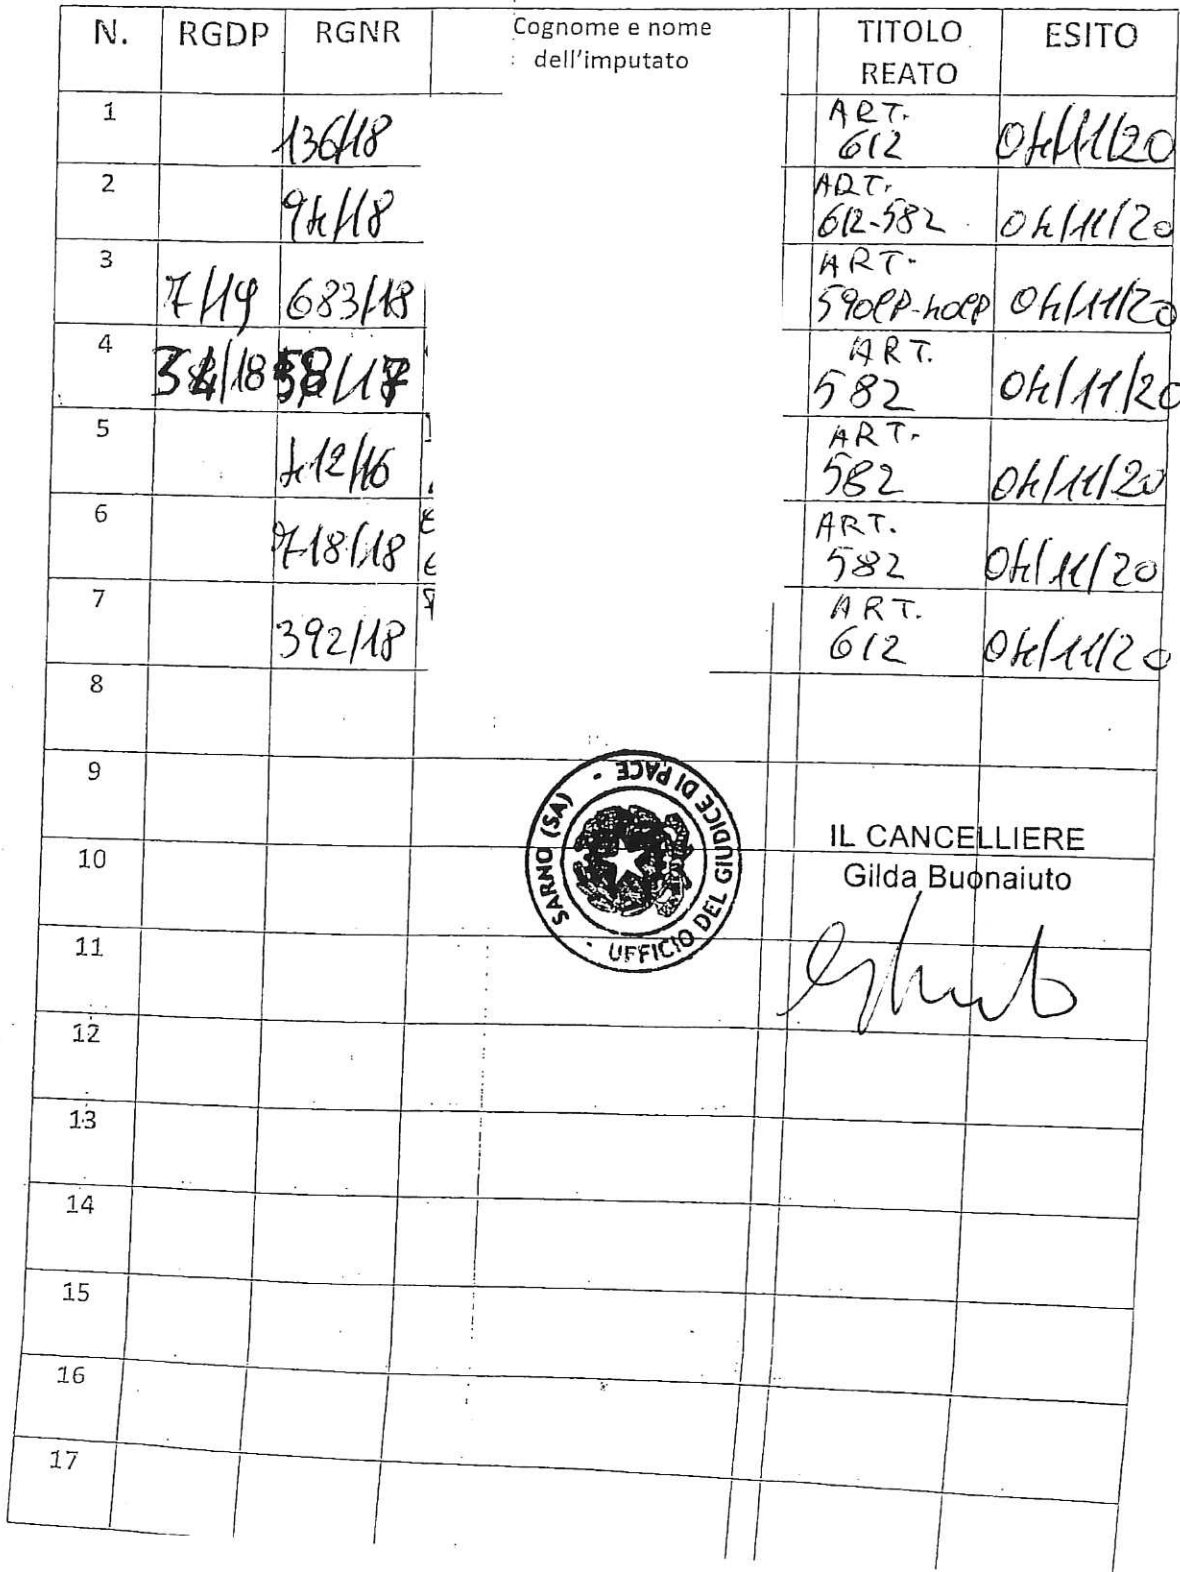 N. RGDP RGNR Cognome e nome TITOLO ESITO
dell'imputato REATO
1 136/18 ART. 612 04/11/20
2 94/18 ART. 612-582 04/11/20
3 7/19 683/18 ART. 590CP-40CP 04/11/20
4 /18 /17 ART. 582 04/11/20
5 412/16 ART. 582 04/11/20
6 718/18 ART. 582 04/11/20
7 392/18 ART. 612 04/11/20
8
9
10
11
12
13
14
15
16
17
UFFICIO DEL GIUDICE DI PACE - SARNO (SA) -
IL CANCELLIERE
Gilda Buonaiuto